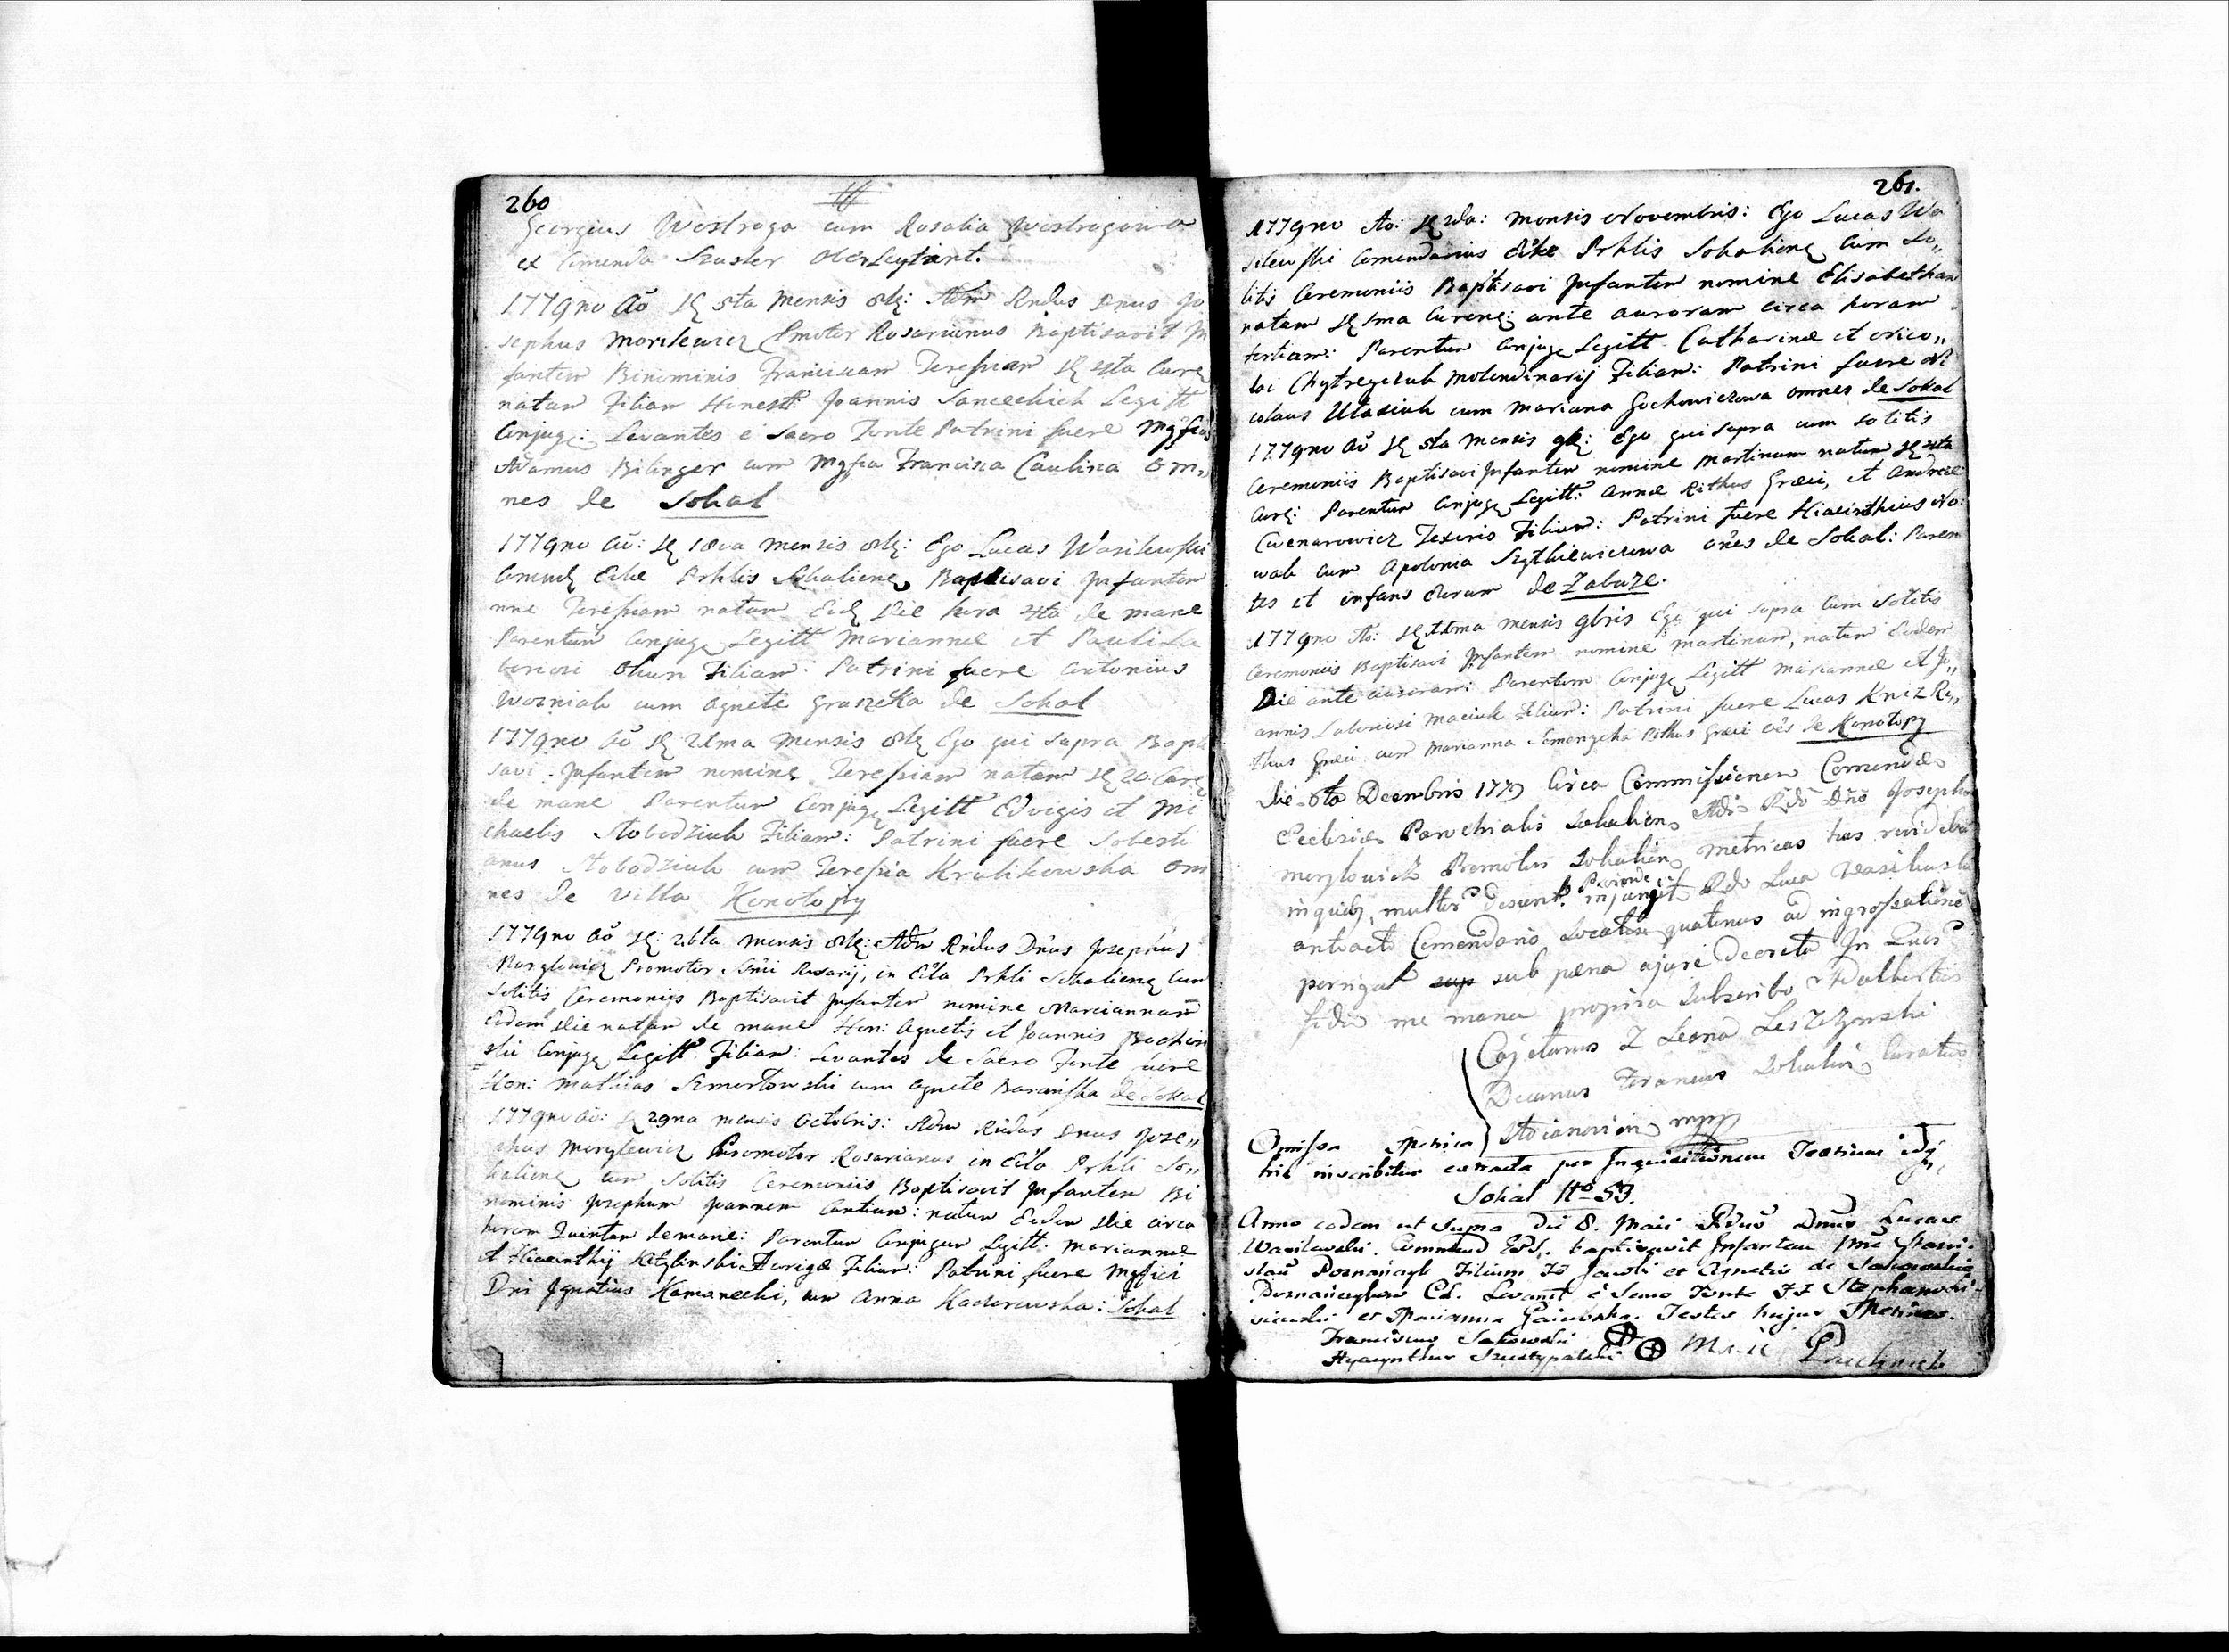 260
Georgius Westroga cum Rosalia Westrogowa
ex Comenda Szuster Oberleytinant.
1779no Aō 5ta Mensis 8bris: Adm Rndus Dnus Jo
sephus Morikewicz Pmotor Rosarianus Baptisavit In
fantem Binominis Franciscam Teresiam 4ta Curen
natam Filiam Honest: Joannis Legitt
Conjug: Levantes e Sacro Fonte Patrini fuere Mgficus
Adamus Bilinger cum Mgfica Francisca Caulina Om,,
nes de Sokal
1779no Aō: 18va mensis 8bris: Ego Lucas Wasilewski
Comend Eclae Prhlis Sokaliens Baptisavi Infantem
nne Teresiam natam Ead Die hora 4ta de mane
Parentum Conjug Legitt Mariannae et Pauli La
boriosi Ohun Filiam: Patrini fuere Antonius
Wozniak cum Agnete Granecka de Sokal
1779no Aō 21ma Mensis 8bris Ego qui supra Bapti
savi Infantem nomine Teresiam natam 20 Curen
de mane Parentum Conjug Legitt Edvigis et Mi
chaelis Stobodziuk Filiam: Patrini fuere Sebesti
anus Stobodziuk cum Teresia Krulikowska Om
nes de Villa Konotopy
1779no Aō 26ta mensis 8bris: Adm Rndus Dnus Josephus
Morylewicz Promotor Ssmi Rosarij, in Ecla Prhli Sokaliens Cum
Solitis Ceremoniis Baptisavit Infantem nomine Mariannam
Eadem Die natam de mane Hon: Agnetis et Joannis Bochin
ski Conjug Legitt Filiam: Levantes de Sacro Fonte fuere
Hon: Mathias Szmertowski cum Agnete Baranska de Sokal
1779no Aō: 29na mensis Octobris: Adm Rndus Dnus Jose,,
phus Morylewicz Promotor Rosarianus in Ecla Prhli So,,
kaliens cum Solitis Ceremoniis Baptisavit Infantem Bi
nominis Josephum Joannem Cantium: natum Eadem Die circa
horam Quintam de mane: Parentum Conjugum Legitt: Mariannae
et Hiacinthij Aurigae Filium: Patrini fuere Mgfici
Dni Ignatius Kamanecki, cum Anna Kaderewska: Sokal
261.
1779no Ao: 2da: Mensis Novembris: Ego Lucas Wa
silewski Comendarius Eclae Prhlis Sokaliens Cum So,,
litis Ceremoniis Baptisavi Infantem nomine Elisabetham
natam 1ma Curens: ante auroram circa horam
tertiam: Parentum Conjug Legitt Catharinae et Nico,,
lai Chytreyczuk Molendinarij Filiam: Patrini fuere Ni
colaus Utasiuk cum Mariana Gochowiczowa omnes de Sokal
1779no Aō 5ta Mensis 9bris: Ego qui supra cum solitis
Ceremoniis Baptisavi Infantem nomine Martinum natum 4ta
Curs: Parentum Conjug Legitt: Annae Rithus Graeci, et Andreae
Cwenarowicz Textoris Filium: Patrini fuere Hiacinthus No:
wak cum Apolonia Szytkiewiczowa omēs de Sokal: Paren
tes et infans eorum de Zabuze.
1779no Ao: 11ma mensis 9bris Ego qui supra Cum Solitis
Ceremoniis Baptisavi Infantem nomine Martinum, natum Eadem
Die ante auroram: Parentum Conjug Legitt Mariannae et Jo,,
annis Laboriosi Maciuk Filium: Patrini fuere Lucas Kniz Ri,,
thus Graeci cum Marianna Semenycha Rithus Graeci oēs de Konotopy
Die 6ta Decembris 1779 Circa Commissionem Comendae
Ecclesiae Parochialis Sokaliens Adm Rdo Dno Josepho
Morylowicz Promotor Sokaliens metricas has revidebam
in quibus multum desiderat. Proinde injungit Rdo Luca Wasilewski
anteacto Comendario quatenus ad ingrossationem
pergat sub paena a jure Decreta In Quorum
fidem me manu propria Subscribo Adalbertus
Cajetanus Z Lesna Leszczynski
Decanus Foraneus Sokalien Curatus
Stoianovien mpp
Omissa Metrica
hic inscribitur extracta per Inquisitionem Testium
Sokal No 53.
Anno eodem ut Supra Die 8. Maii Rdus Dnus Lucas
Wasilewski. Commend EPS. baptisavit Infantem Nne Stani:
slau Poznanczyk Filium Pauli et Agnetis de
Poznanczykow Cl. Levant e Sacro Fonte Stephanus
et Marianna Gaiewska. Testes hujus Metricae.
Franciscus Sakowski
Hyacynthus